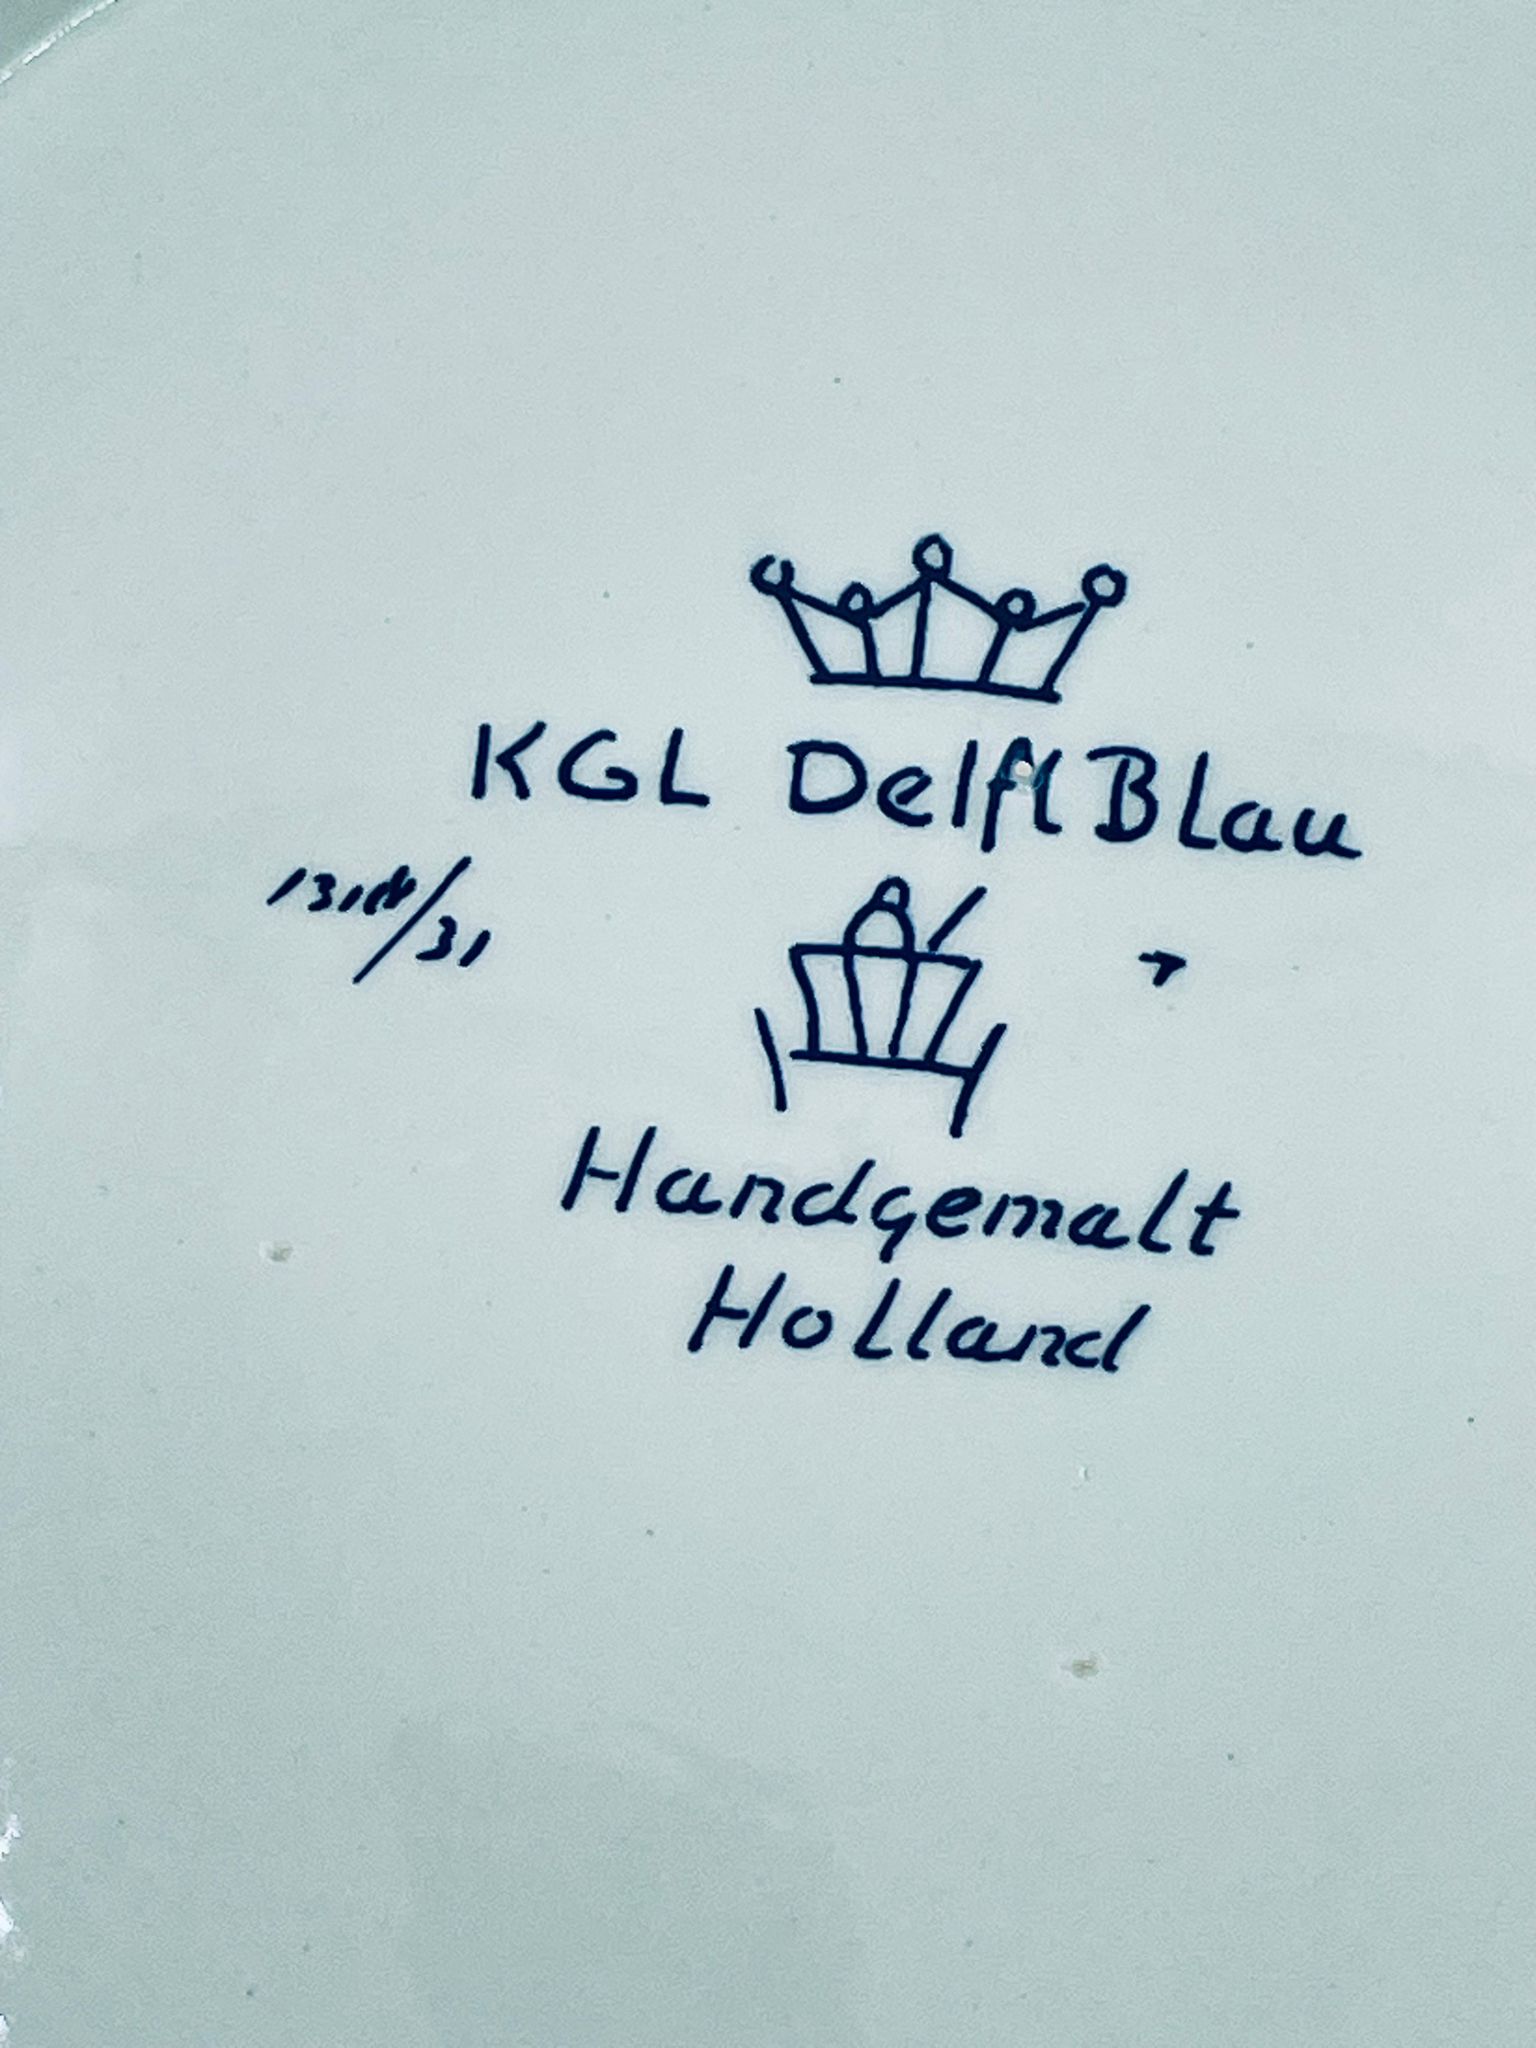 KGL Delft Blau
Handgemalt
Holland